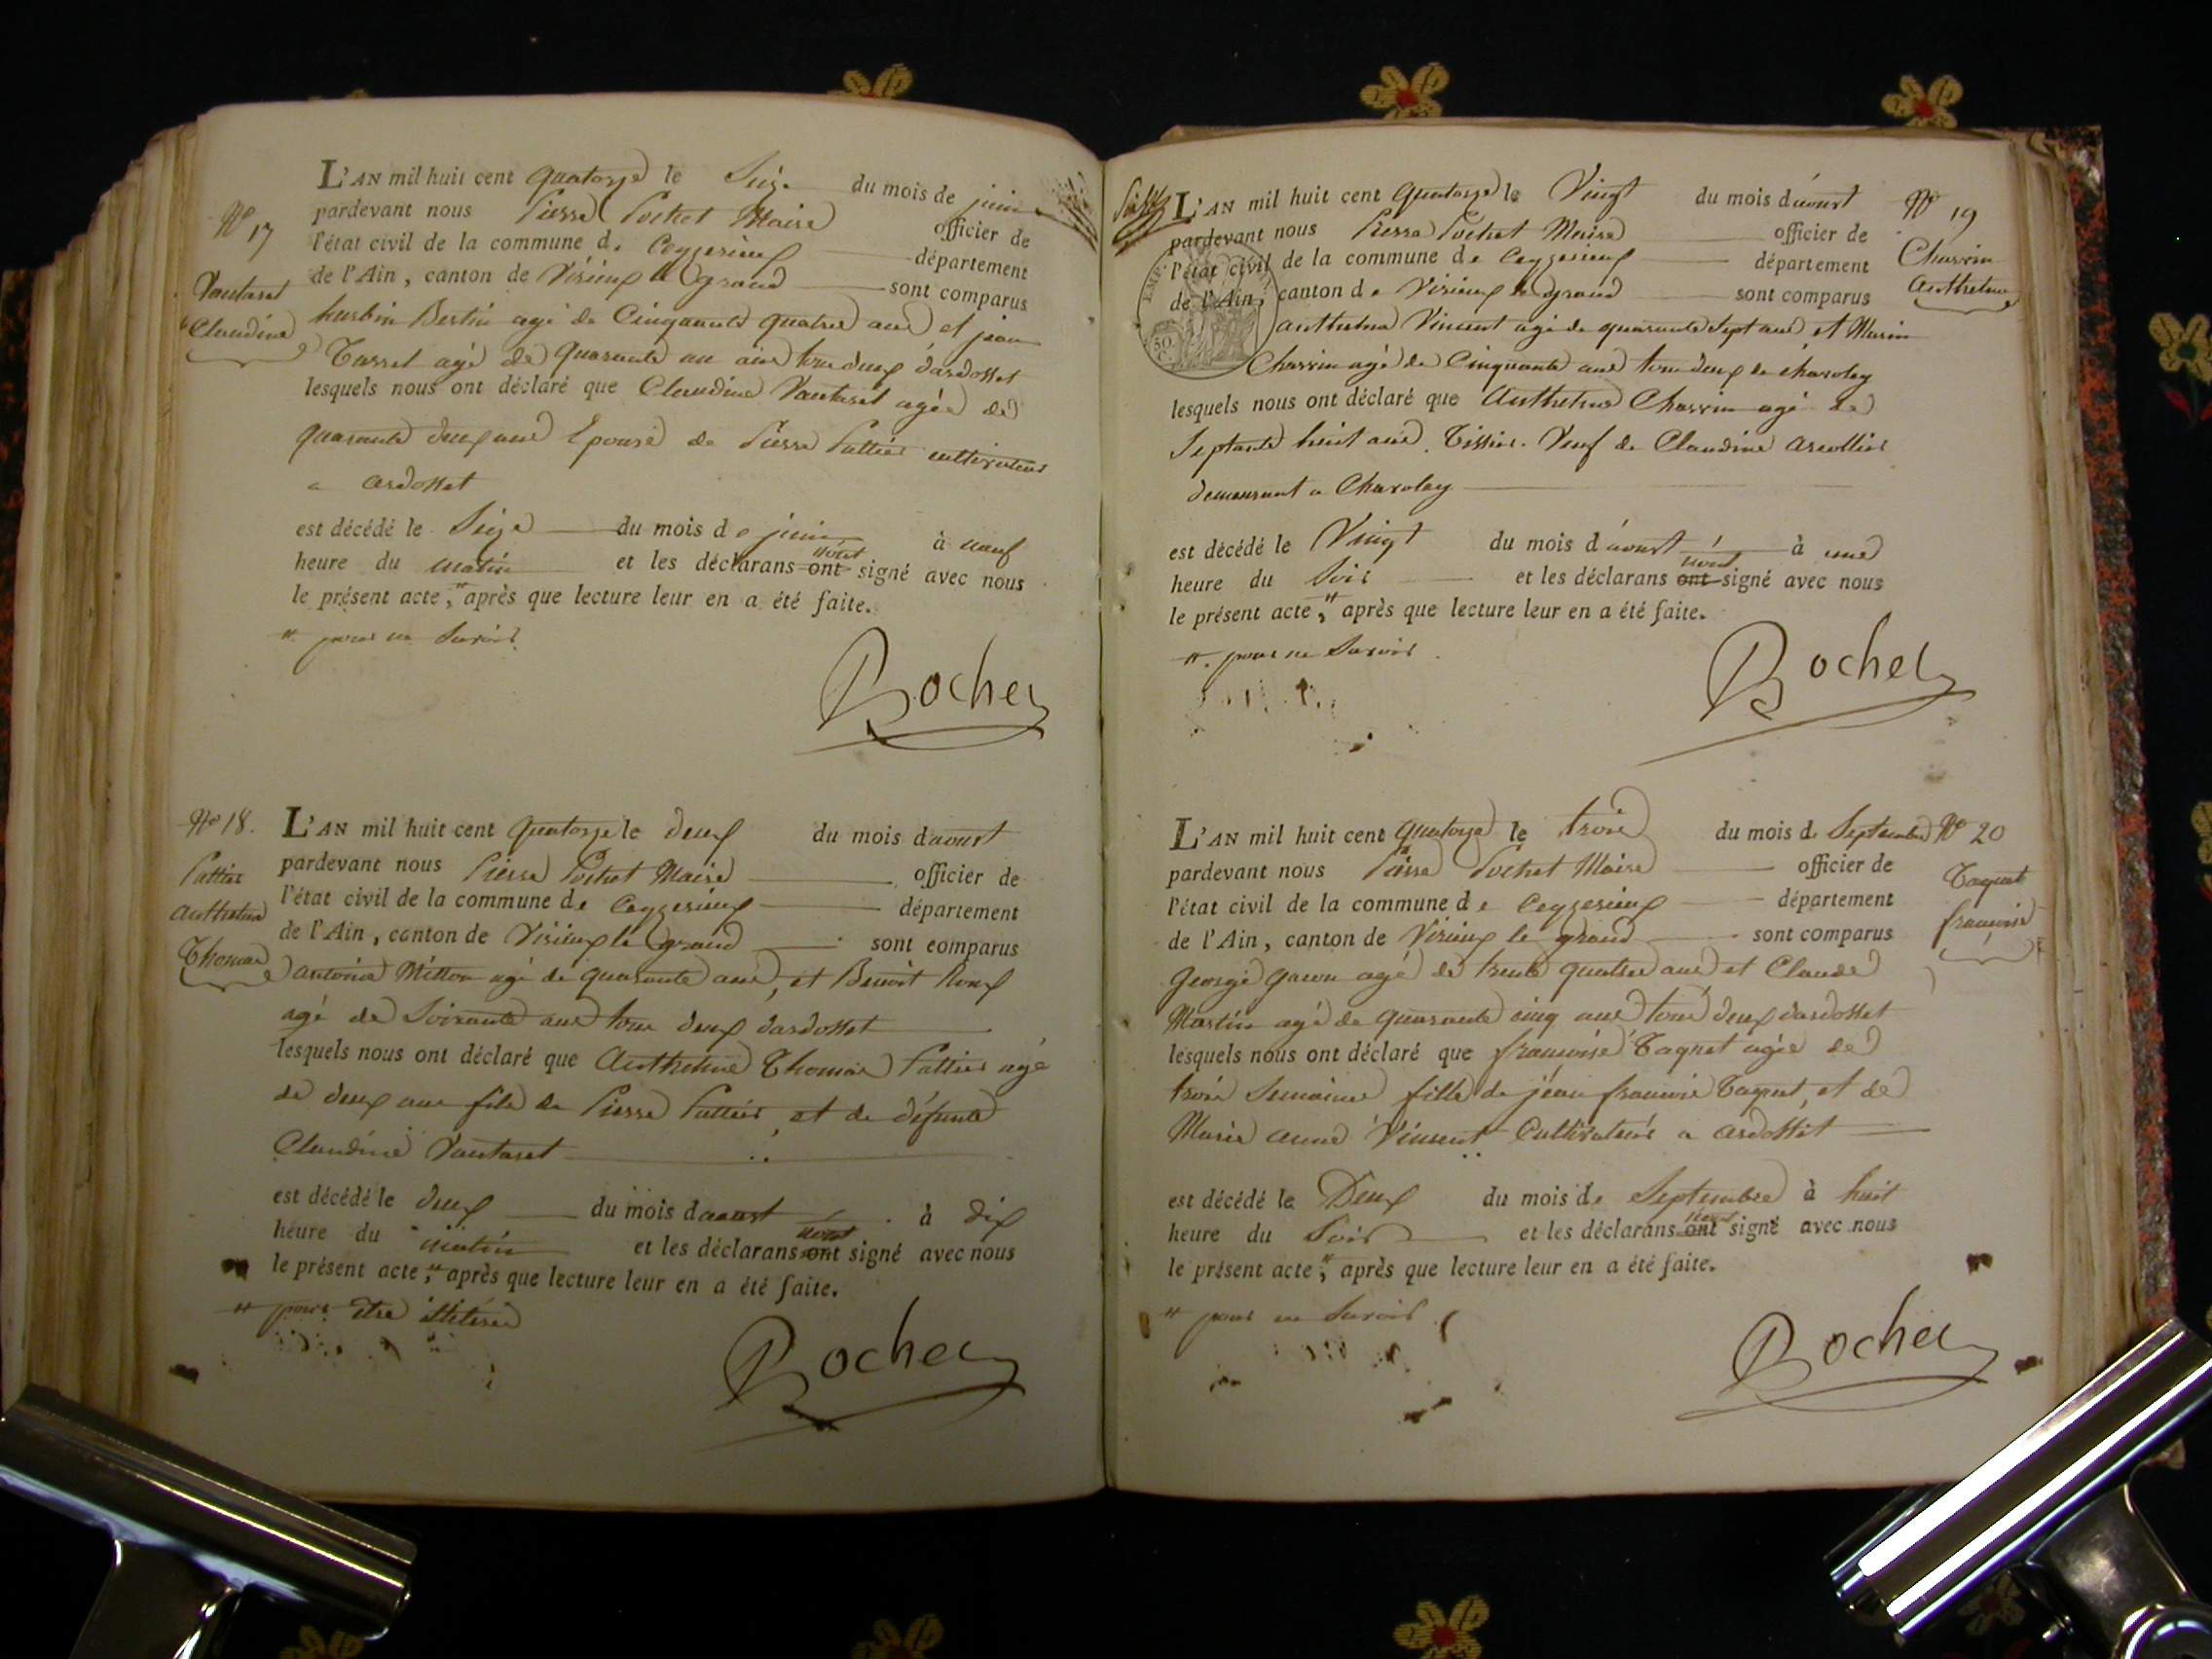 N° 17
Vautaret
Claudine
L'AN mil huit cent quatorze le Seize du mois de juin
pardevant nous Pierre Pochet Maire officier de
l'état civil de la commune de Ceyzerieux département
de l'Ain, canton de Virieux le grand sont comparus
hurbin Bertin agé de Cinquante quatre ans et jean
Tarret agé de quarante un ans tous deux d'ardosset
lesquels nous ont déclaré que Claudine Vautaret agée de
quarante deux ans Epouse de Pierre Pattier cultivateur
a ardosset
est décédé le Seize du mois de juin à neuf
heure du matin et les déclarans ont nont signé avec nous
le présent acte, # après que lecture leur en a été faite.
# pour ne Savoir
Pochet
N° 18.
Pattier
Anthelme
Thomas
L'AN mil huit cent quatorze le deux du mois daoust
pardevant nous Pierre Pochet Maire officier de
l'état civil de la commune de Ceyzerieux département
de l'Ain, canton de Virieux le grand sont comparus
antoine Mitton agé de quarante ans, et Benoit Roux
agé de Soixante ans tous deux dardosset
lesquels nous ont déclaré que Anthelme Thomas Pattier agé
de deux ans fils de Pierre Pattier, et de défunte
Claudine Vautaret
est décédé le deux du mois daoust à dix
heure du matin et les déclarans ont nont signé avec nous
le présent acte, # après que lecture leur en a été faite.
# pour être illitéré
Pochet
L'AN mil huit cent quatorze le Vingt du mois d'aoust
pardevant nous Pierre Pochet Maire officier de
l'état civil de la commune de Ceyzerieux département
de l'Ain, canton de Virieux le grand sont comparus
50
anthelme Vincent agé de quarante Sept ans et Marin
Charrin agé de Cinquante ans tous deux de charoley
lesquels nous ont déclaré que Anthelme Charrin agé de
Septante huit ans. Tissier. Veuf de Claudine arcollier
demeurant a Charolay
est décédé le Vingt du mois d'aoust à une
heure du Soir et les déclarans ont nont signé avec nous
le présent acte, # après que lecture leur en a été faite.
#. pour ne Savoir.
Pochet
N° 19
Charrin
Anthelme
L'AN mil huit cent quatorze le trois du mois de Septembre
pardevant nous Pierre Pochet Maire officier de
l'état civil de la commune de Ceyzerieux département
de l'Ain, canton de Virieux le grand sont comparus
George gacon agé de trente quatre ans et Claude
Martin agé de quarante cinq ans tous deux dardosset
lesquels nous ont déclaré que françoise Taquet agée de
trois Semaines fille de jean françois Taquet, et de
Marie anne Vincent Cultivateurs a ardosset
est décédé le Deux du mois de Septembre à huit
heure du Soir et les déclarans ont nont signé avec nous
le présent acte, # après que lecture leur en a été faite.
# pour ne Savoir
Pochet
N° 20
Taquet
françoise